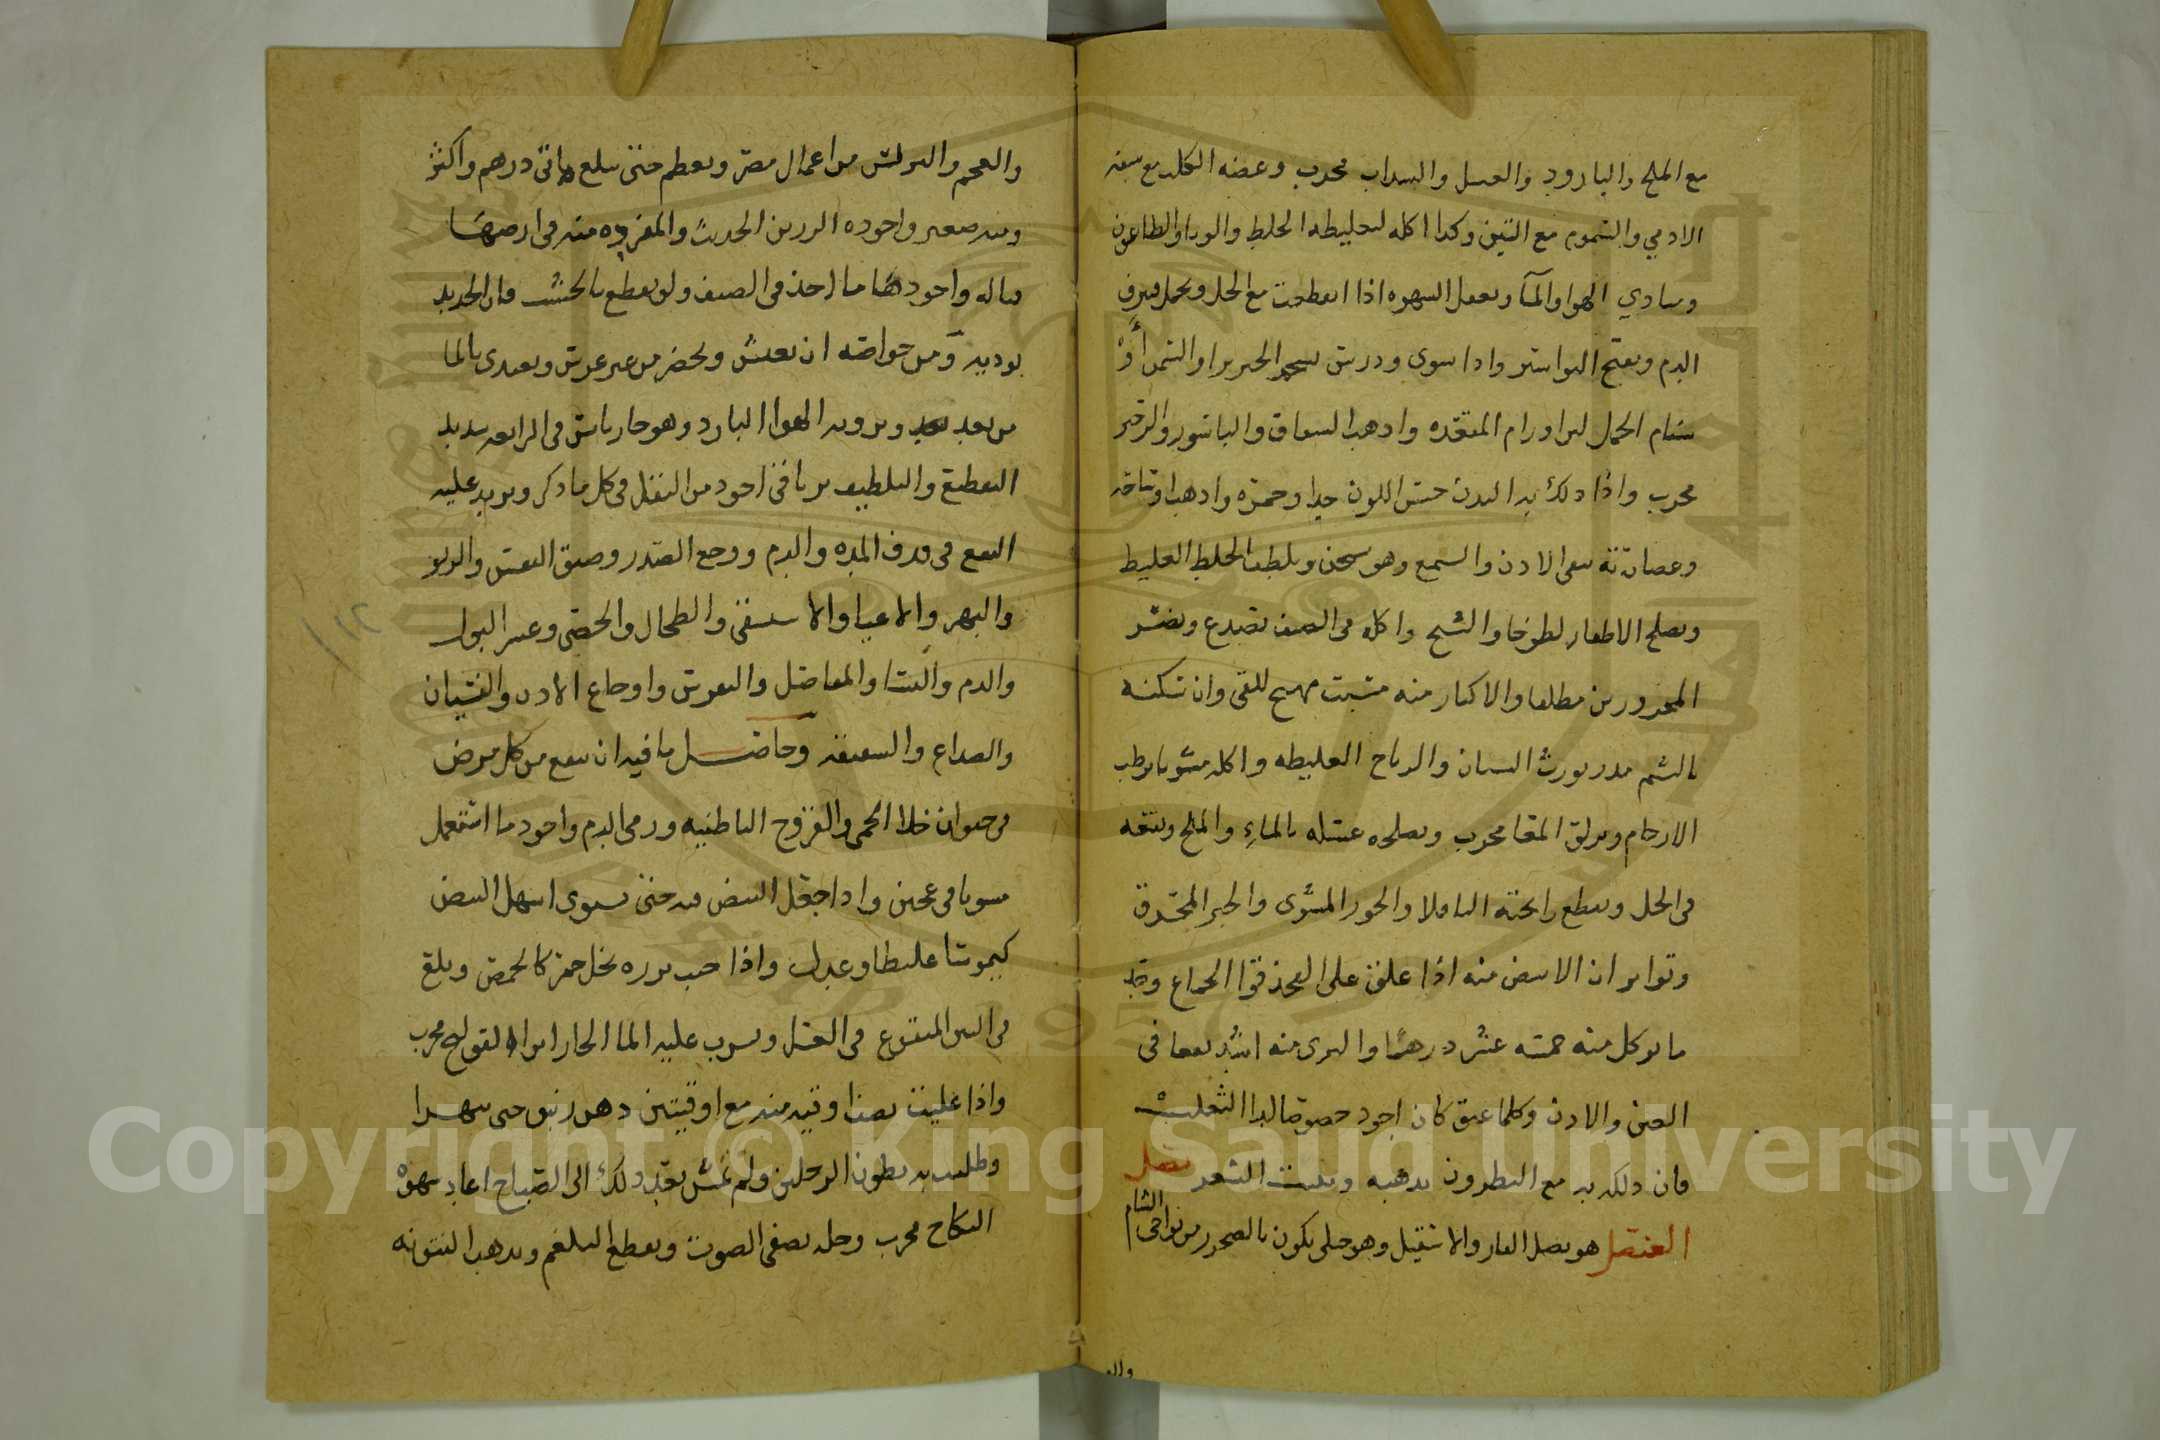 مع الملح والبارود والعسل والسداب مجرب وعضه الكلب مع سعر
الادمي والسموم مع التين وكدا اكله لتغليظه الخلط والوبا والطاعون
الهوا والمآ وتفعل الشهوه اذا انطبخت مع الخل وتحمل
الدم وتفتح البواسير واذا شوى ودرس بشحم الخنزير او السمن أوْ
سنام الجمل ليّن اورام المقعده واذهب الشقاق والباسور والزحير
مجرب واذا دلك به البدن حسن اللون جدا وحمره واذهب اوساخه
وعصارته تنقى الادن والسمع وهو يسخن ويلطف الخلط الغليظ
ويصلح الاظفار لطوخا والشيح واكله فى الصيف يصدع ويضر
المحرورين مطلقا والاكثار منه مسبت مهيج للقى وان تسكنه
بالشم يورث النسيان والرياح الغليظه واكله مشويا يرطب
الارحام ويزلق المعا مجرب ويصلحه غسله بالماءِ والملح ونقعه
فى الخل ويقطع رايحته الباقلا والجوز المشوى والخبز المحترق
وتواتر ان الابيض منه اذا علق على الفخذ قوّا الجماع وحد
ما يوكل منه خمسه عشر درهما والبرى منه اشد نفعا فى
العين والادن وكلما عتق كان اجود خصوصا لدا الثعلب
فان دلكه به مع النطرون يدهبه وينبت الشعر بصل
العنصل هو بصل الفار والاشقيل وهو جبلى يكون بالصخور من نواحى الشام
والعجم والبرلس من اعمال مصر ويعظم حتى يبلغ ماتى درهم واكثر
ومنه صغير واجوده الرزين الحديث والمفرده منه فى ارضها
قتاله واجودها ما اخذ فى الصيف ولو يقطع بالخشب فان الحديد
يوديه ومن خواصه ان يعيش ويخضر من غير غرس ويغتدى بالما
من بعد بعيد ويرويه الهوا البارد وهو حار يابس فى الرابعه شديد
التقطيع والتلطيف ترياقى اجود من البصل فى كل ما ذكر ويزيد عليه
النفع فى قدف المده والدم ووجع الصدر وضيق النفس والربو
والبهر والاعيا والاستسقى والطحال والحصى وعسر البول
والدم والنسا والمفاصل والنقرس واوجاع الادن والغشيان
والصداع والشقيقه وحاصل ما فيه انه ينفع من كل مرض
فى حيوان خلا الحمى والقروح الباطنيه ورمى الدم واجود ما استعمل
مشويا فى عجين واذا جعل البيض فيه حتى يشوى اسهل البيض
كيموسا غليظا وعدل واذا حبب بزره بخل خمر كالحمص وبلع
فى التين المنقوع فى العسل وشرب عليه الما الحار ابرا القولنج مجرب
واذا غليت نصف اوقيه منه مع اوقيتين دهن زنبق حتى يتهرا
وطليت به بطون الرجلين ولم تمش بعد دلك الى الصباح اعاد شهوة
النكاح مجرب وخله يصفى الصوت ويقطع البلغم ويدهب النتونه